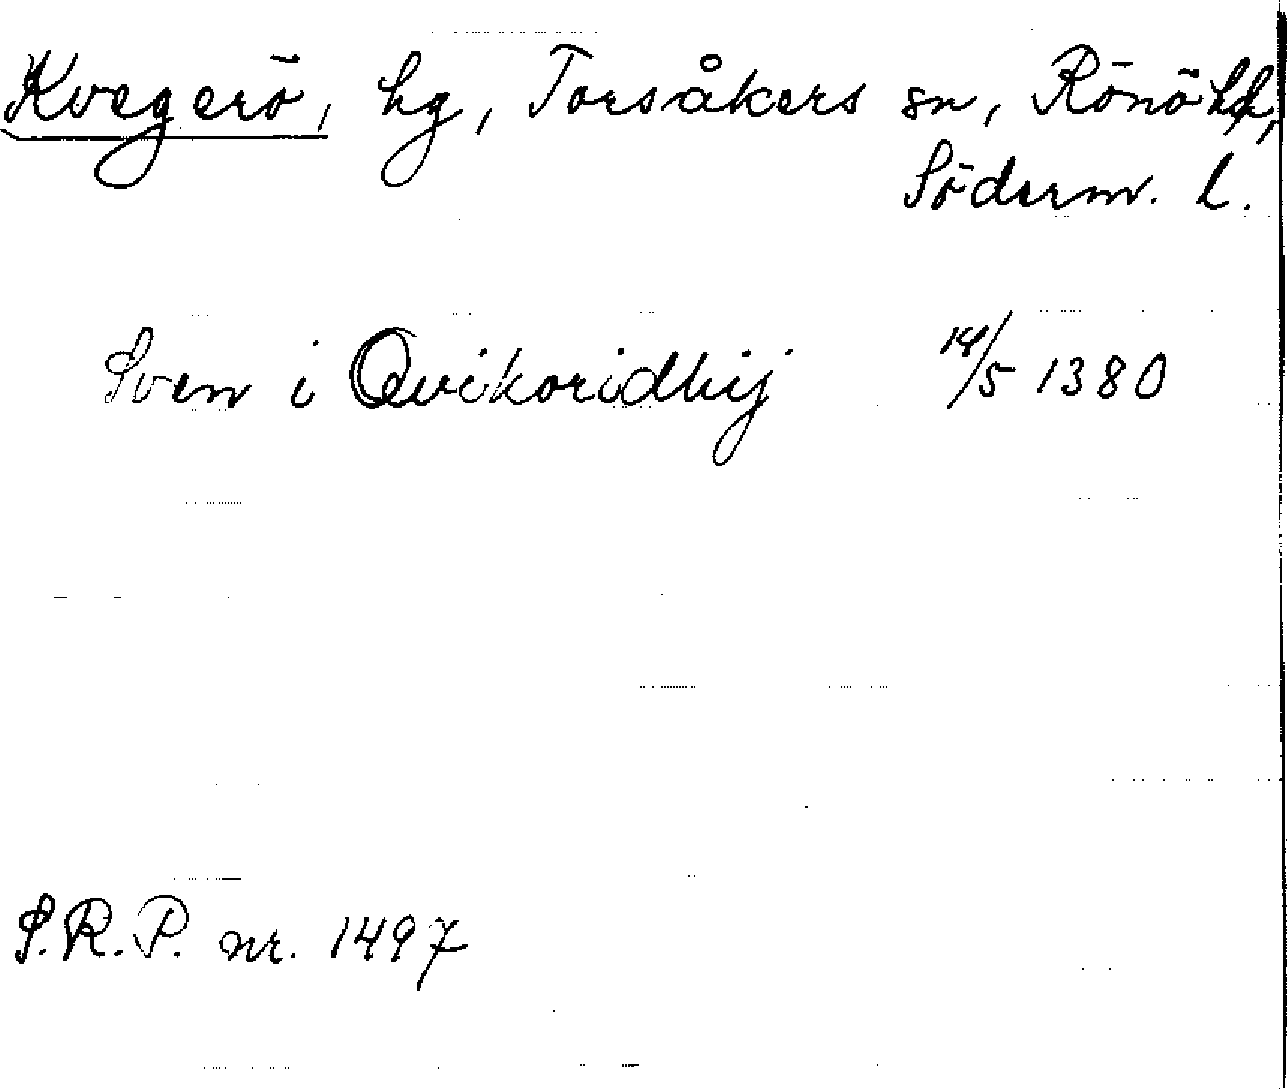 Kvegerö, hg, Torsåkers sn, Rönö hd,
Söderm. l.
Sven i Qvikoridhij 14/5 1380
S.R.P. nr. 1497